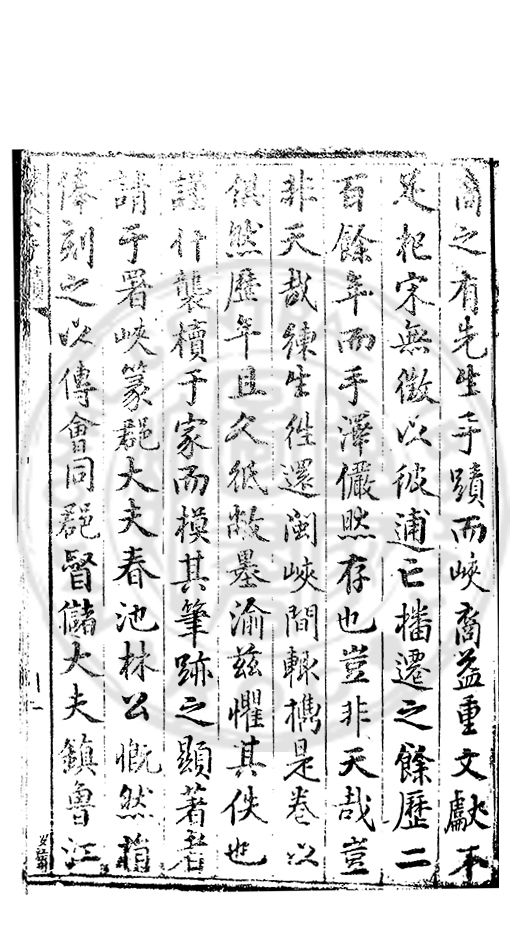 裔之有先生手蹟而峽裔益重文獻不
足杞宋無徵以彼逋亡播遷之餘歷二
百餘年而手澤儼然存也豈非天哉豈
非天哉練生徃還閩峽間輙攜是卷以
俱然歷年且久紙敝墨渝兹懼其佚也
謹什襲櫝于家而模其筆跡之顯著者
請于署峽篆郡大夫春池林公慨然捐
俸刻之以傳會同郡督儲大夫鎮魯江